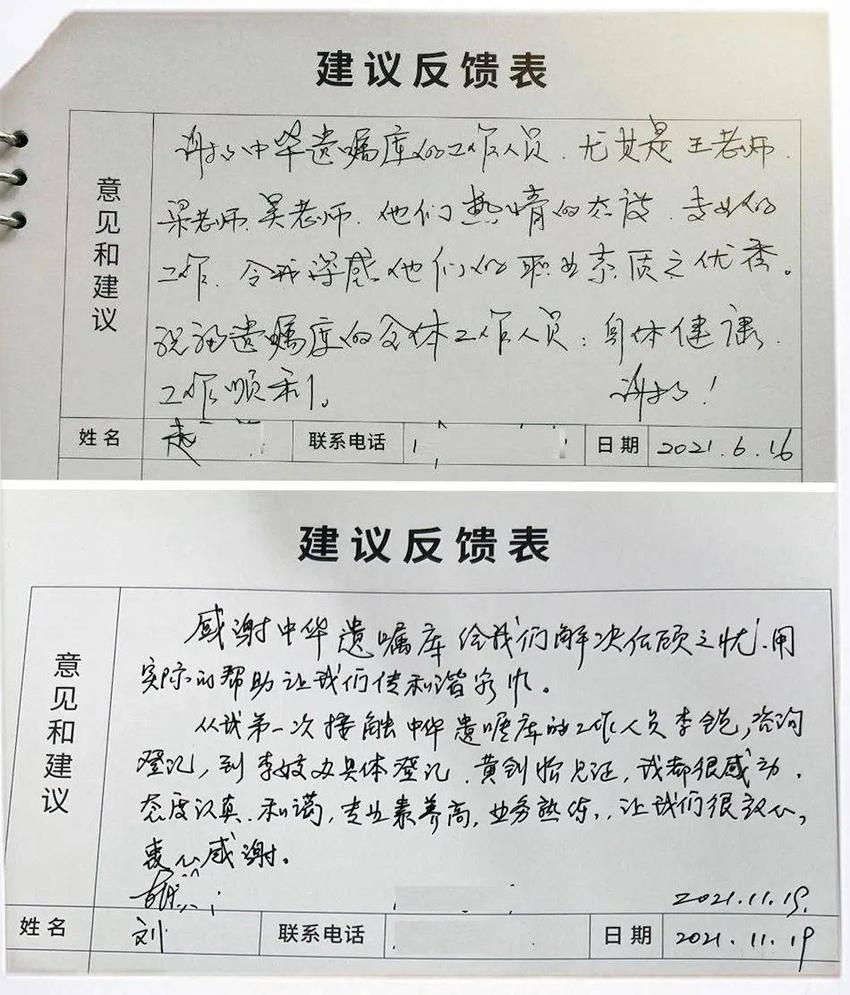 建议反馈表
意见和建议
谢谢中华遗嘱库的工作人员.尤其是王老师.
梁老师.吴老师.他们热情的态度.专业的
工作.令我深感他们的职业素质之优秀。
祝福遗嘱库的全体工作人员:身体健康.
工作顺利。 谢谢!
姓名 赵 联系电话 日期 2021.6.16
建议反馈表
意见和建议
感谢中华遗嘱库给我们解决后顾之忧.用
实际的帮助让我们传和谐家
从我第一次接触中华遗嘱库的工作人员李 咨询
登记,到李 具体登记.黄 见证,我都很感动.
态度认真.和蔼,专业素养高,业务熟练,让我们很放心,
衷心感谢。
2021.11.19.
姓名 刘 联系电话 日期 2021.11.19